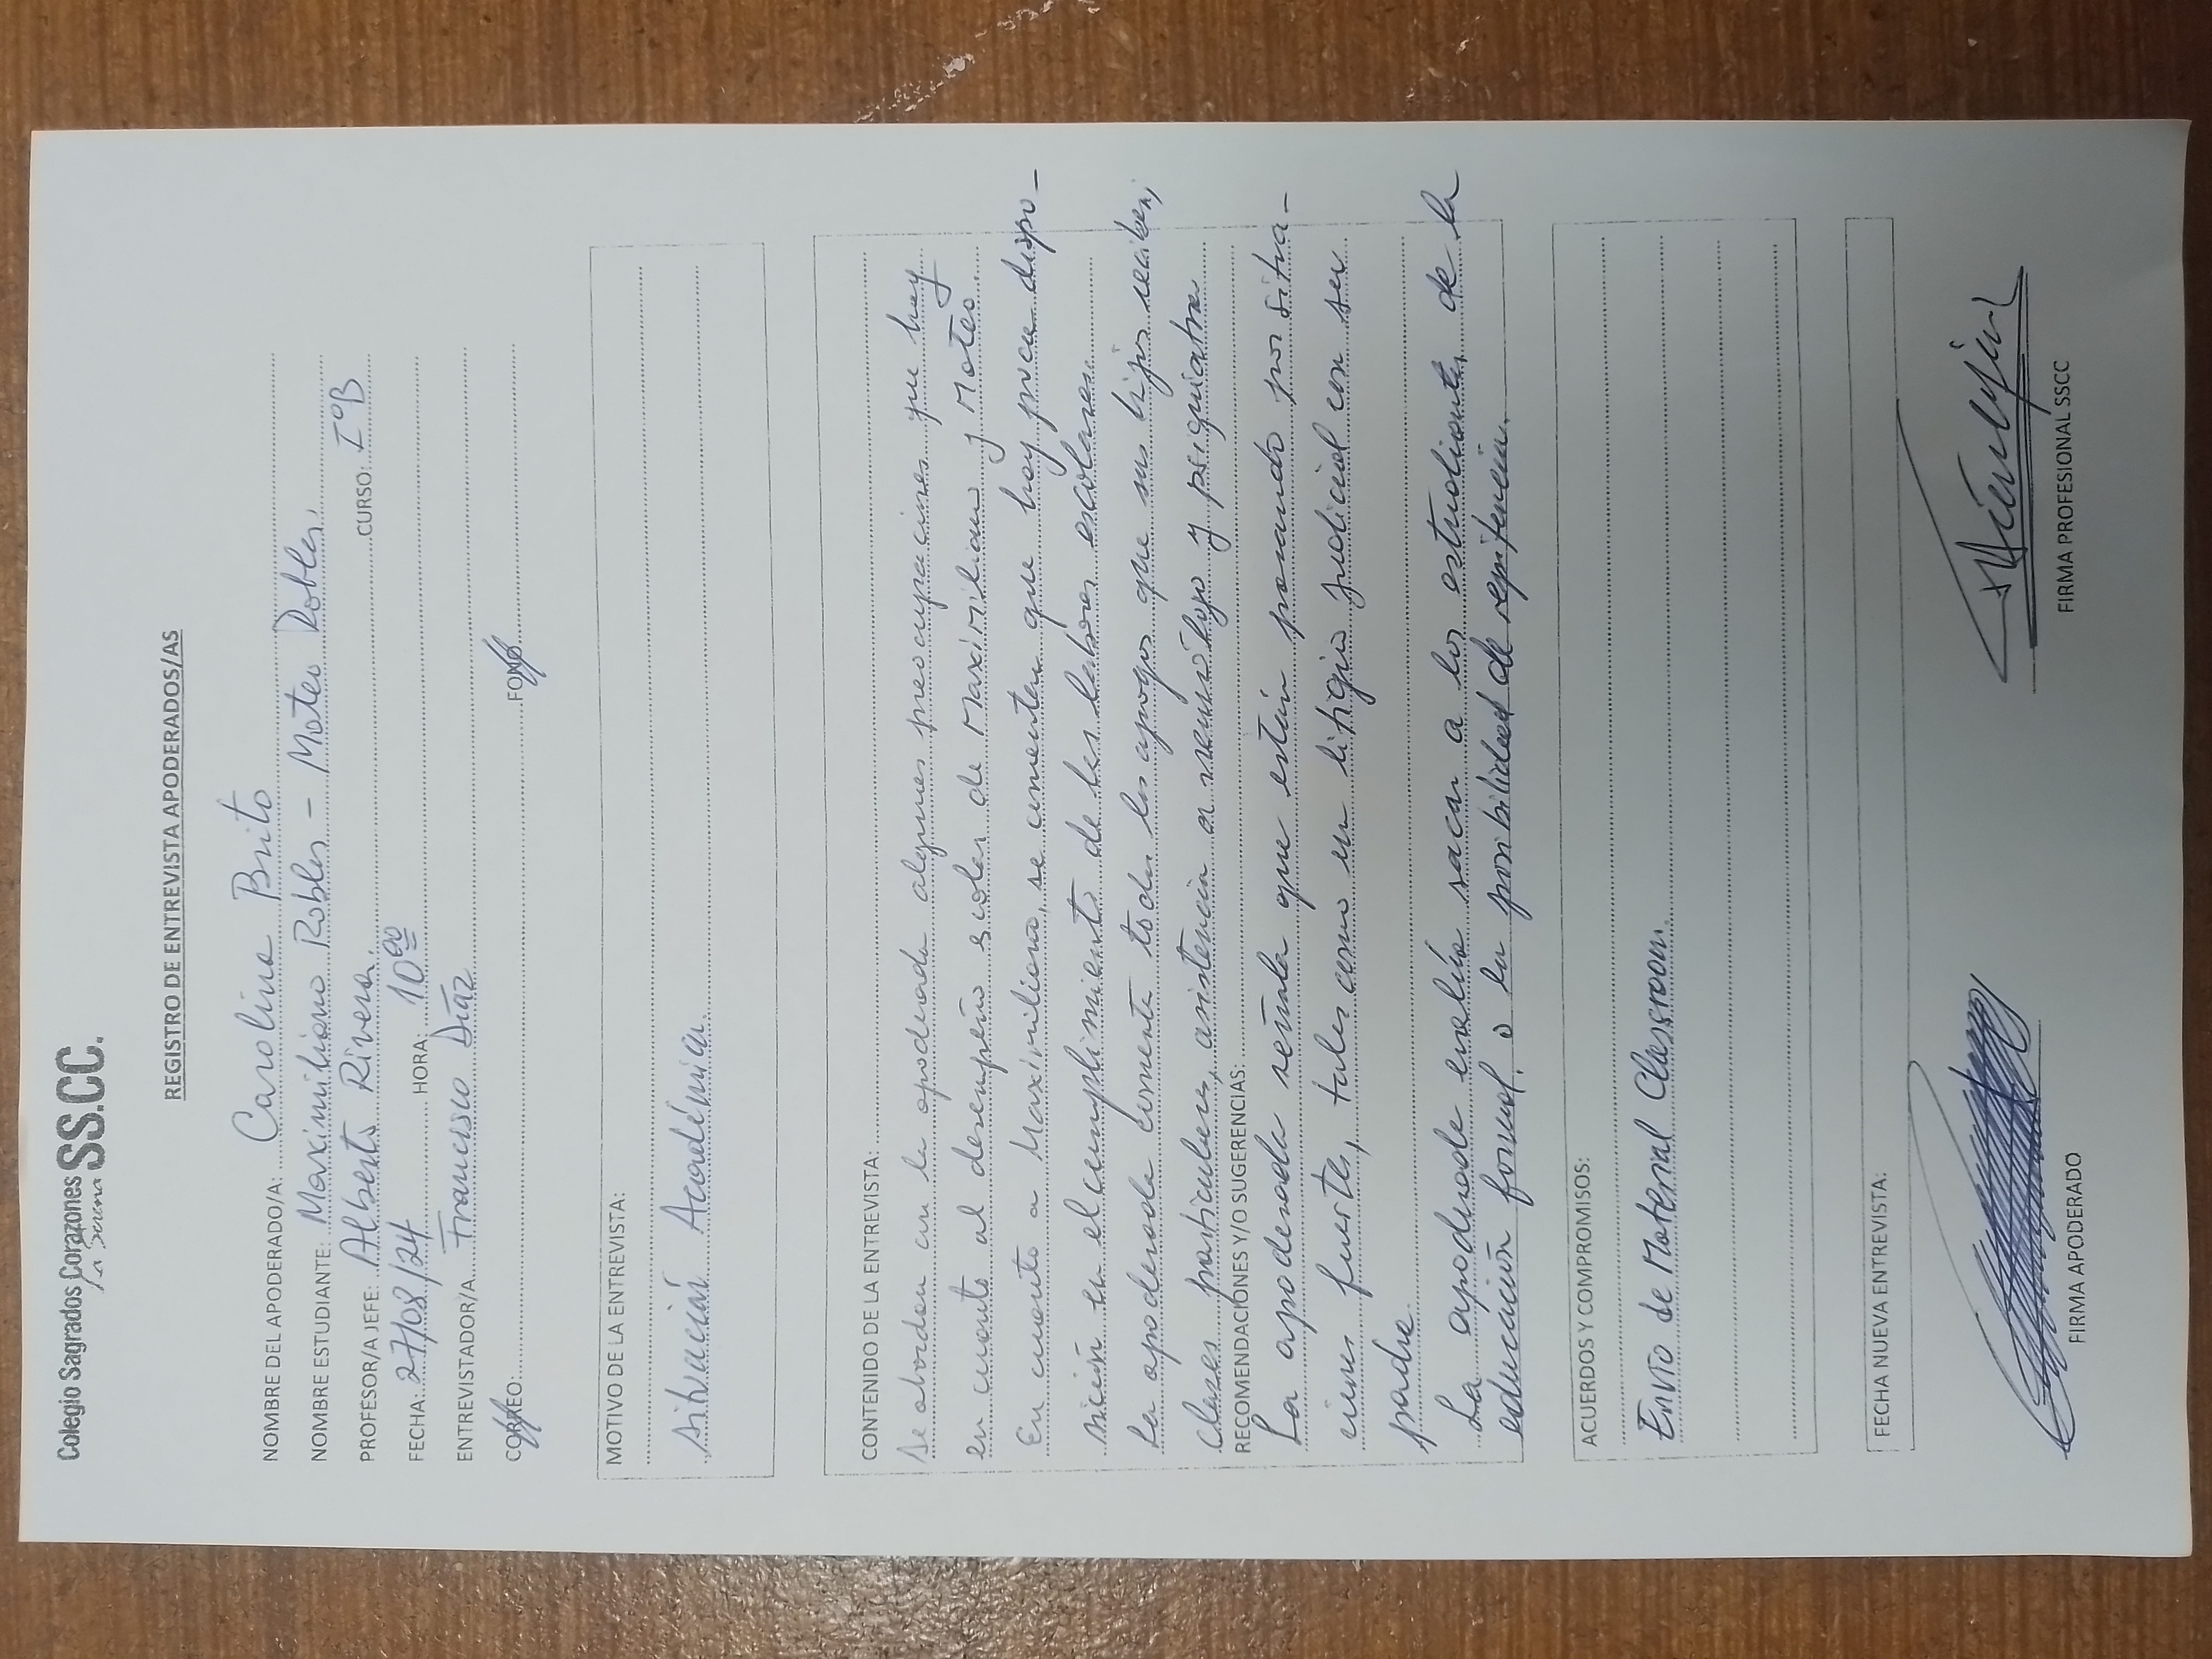 Colegio Sagrados Corazones SS.CC.
La Serena
REGISTRO DE ENTREVISTA APODERADOS/AS
NOMBRE DEL APODERADO/A: Carolina Brito
NOMBRE ESTUDIANTE: Maximiliano Robles - Mateo Robles.
PROFESOR/A JEFE: Alberto Rivera. CURSO: I°B
FECHA: 27/08/24 HORA: 10:00
ENTREVISTADOR/A Francisco Díaz
CORREO: FONO
MOTIVO DE LA ENTREVISTA:
Situación Académica.
CONTENIDO DE LA ENTREVISTA:
Se abordan con la apoderada algunas preocupaciones que hay
en cuanto al desempeño escolar de Maximiliano y Mateo.
En cuanto a Maximiliano, se comenta que hay poca dispo-
sición en el cumplimiento de las labores escolares.
La apoderada comenta todos los apoyos que sus hijos reciben;
clases particulares, asistencia a neurólogo y psiquiatra
RECOMENDACIONES Y/O SUGERENCIAS:
La apoderada señala que están pasando por situa-
ciones fuertes, tales como un litigio judicial con su
padre.
La apoderada evalúa sacar a los estudiantes de la
educación formal. o la posibilidad de repitencia.
ACUERDOS Y COMPROMISOS:
Envío de Material Classroom.
FECHA NUEVA ENTREVISTA:
FIRMA APODERADO
FIRMA PROFESIONAL SSCC